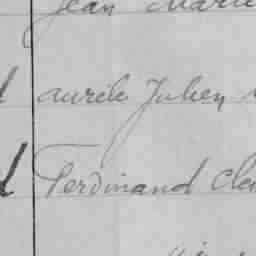 Jean Marie
d aurèle Julien
d Ferdinand Cle